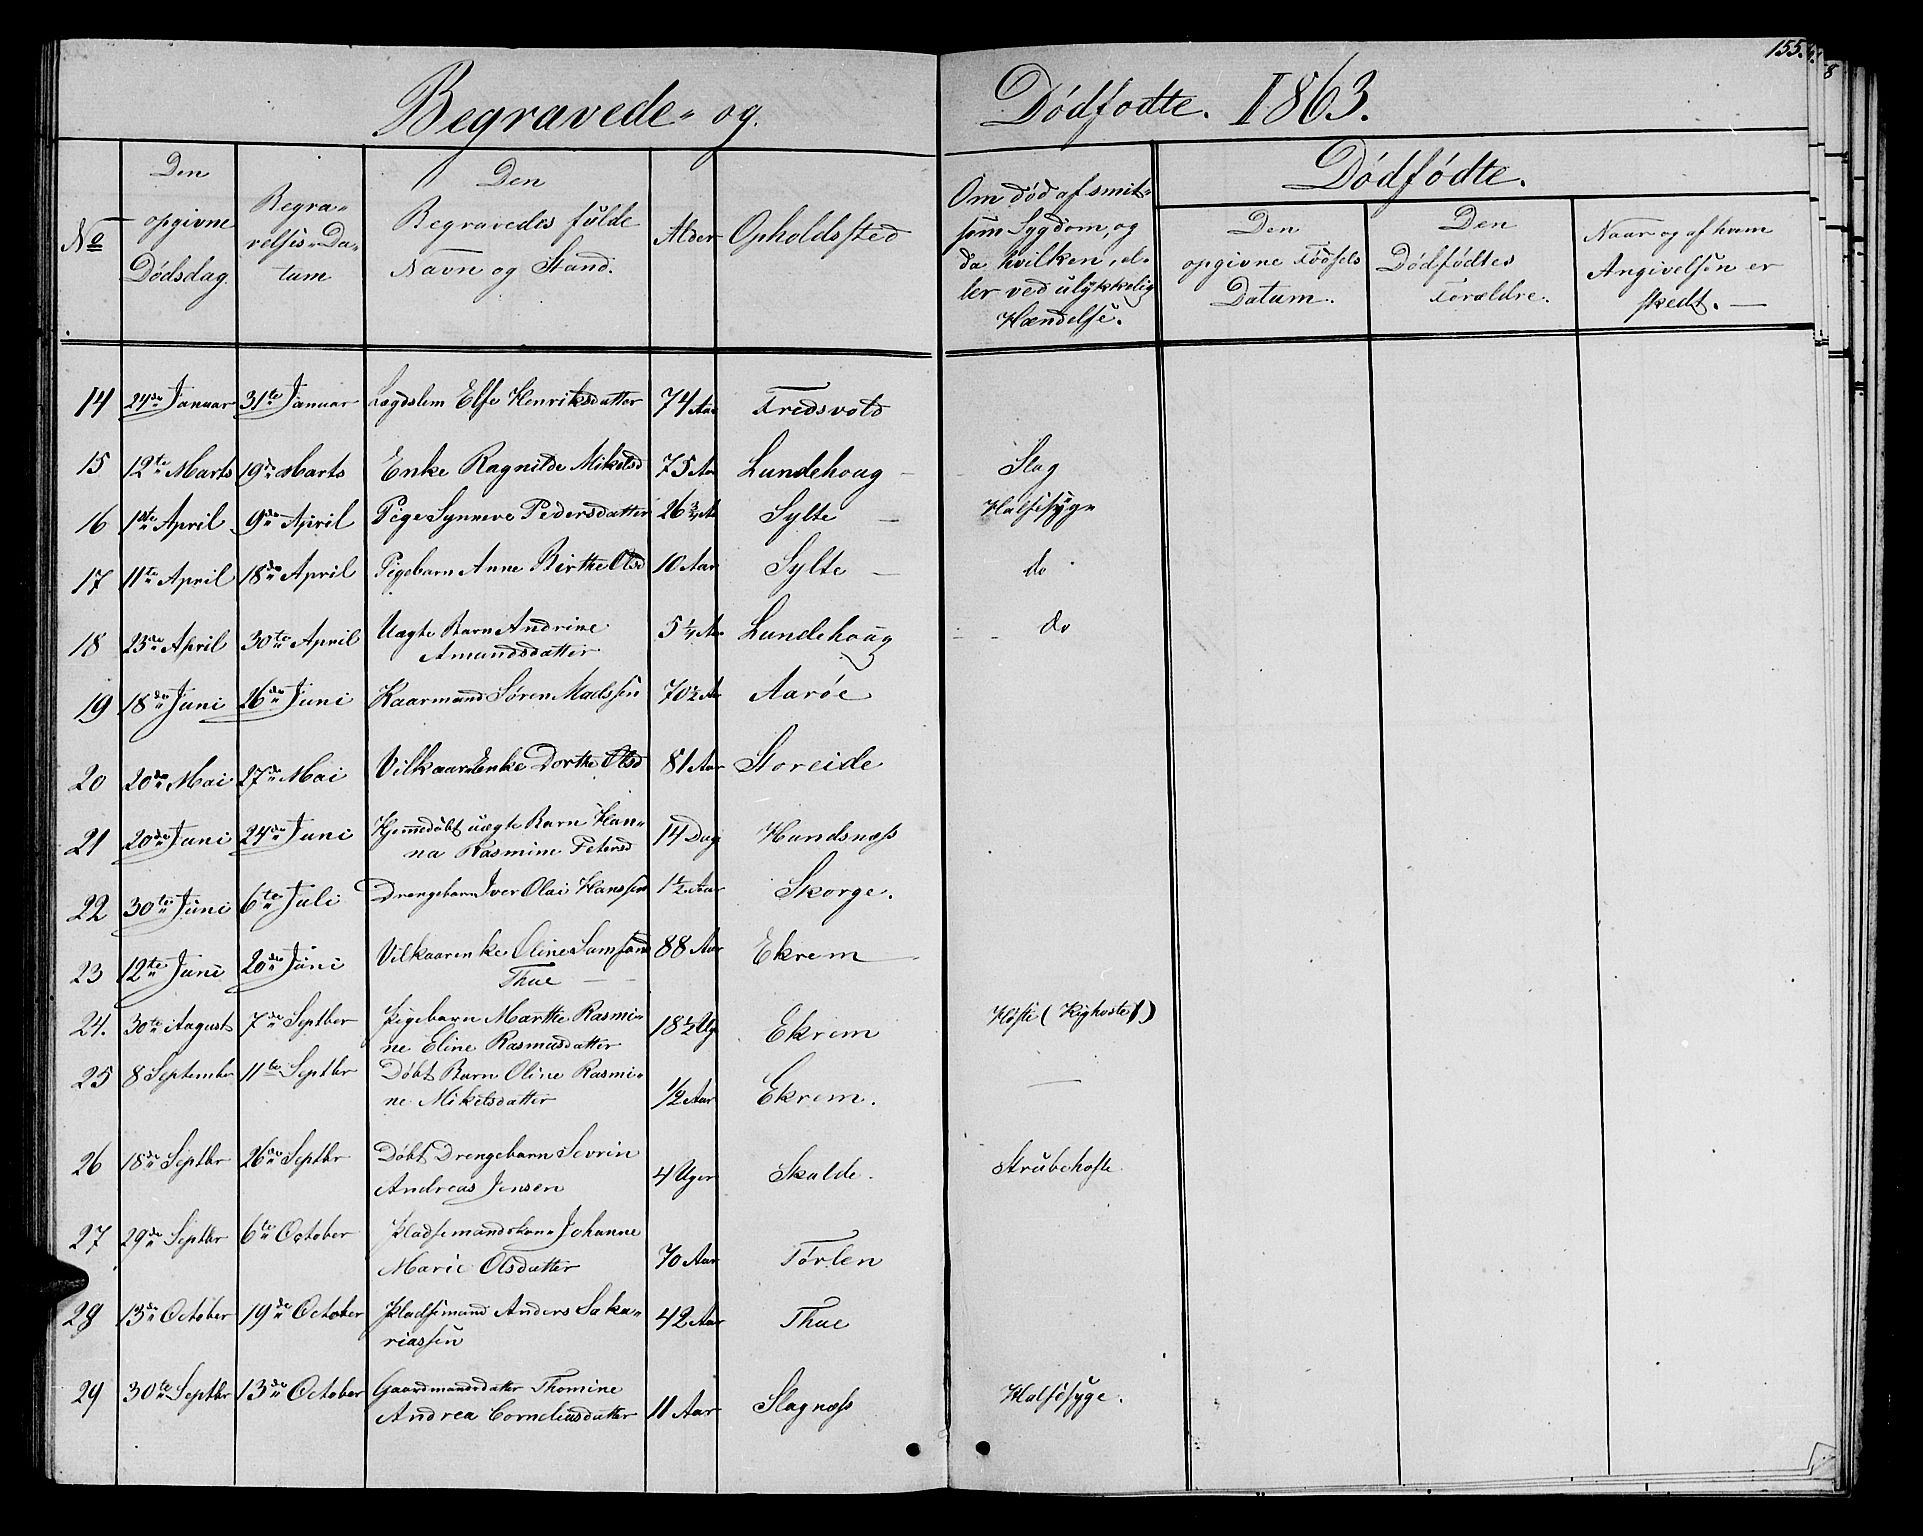 155.
Begravede- og
Dödfodte. 1863.
No
Den opgivne Dödsdag.
Begra-
velses-Da-
tum
Den
Begravedes fulde
Navn og Stand.
Alder
Opholdssted
Om död af smit-
som Sygdom, og
da hvilken, el-
ler ved ulykkelig
Hændelse.
Dödfödte.
Den
opgivne Födsels
Datum.
Den
Dödfödtes
Forældre.
Naar og af hvem
Angivelsen er
skedt. —
14 24de Januar 31te Januar Lægdslem Else Henriksdatter 74 Aar Fredsvold
15 12te Marts 19de Marts Enke Ragnilde Mikelsd 75 Aar Lundehoug — Slag
16 1ste April 9de April Pige Synneve Pedersdatter 26 3/4 A Sylte — Halssyge
17 11te April 18de April Pigebarn Anne Birthe Olsd 10 Aar Sylte — do
18 23de April 30te April Uægte Barn Andrine 5 1/4 Aar Lundehoug do
Amundsdatter
19 18de Juni 26de Juni Kaarmand Sören Madssen 70 1/2 A Aaröe
20 20de Mai 27de Mai Vilkaarsenke Dorthe Olsd 81 Aar Storeide
21 20de Juni 24de Juni Hjemmedöbt uægte Barn Han-
na Rasmine Petersd 14 Dag Hundsnæss
22 30te Juni 6te Juli Drengebarn Iver Olai Hanssen 1 1/2 Aar Skorge.
23 12te Juni 20de Juni Vilkaarenke Oline Samsond 88 Aar Ekrem
Thue —
24. 30te August 7de Septber Pigebarn Marthe Rasmi-
ne Eline Rasmusdatter 18 1/2 Ug Ekrem Höste (Kighoste)
25 8 September 11te Septbr Döbt Barn Oline Rasmi-
ne Mikelsdatter 1/2 Aar Ekrem. —
26 18de Septbr 26de Septbr Döbt Drengebarn Sevrin
Andreas Jensen 4 Uger Skalde. Strubehoste
27 29de Septbr 6te October Pladsemandskone Johanne
Marie Olsdatter 70 Aar Törlen
28 13de October 19de October Pladsemand Anders Saka-
riassen 42 Aar Thue
29 30te Septbr 13de October Gaardmandsdatter Thomine
Andrea Corneliusdatter 11 Aar Slagnæss Halssyge.